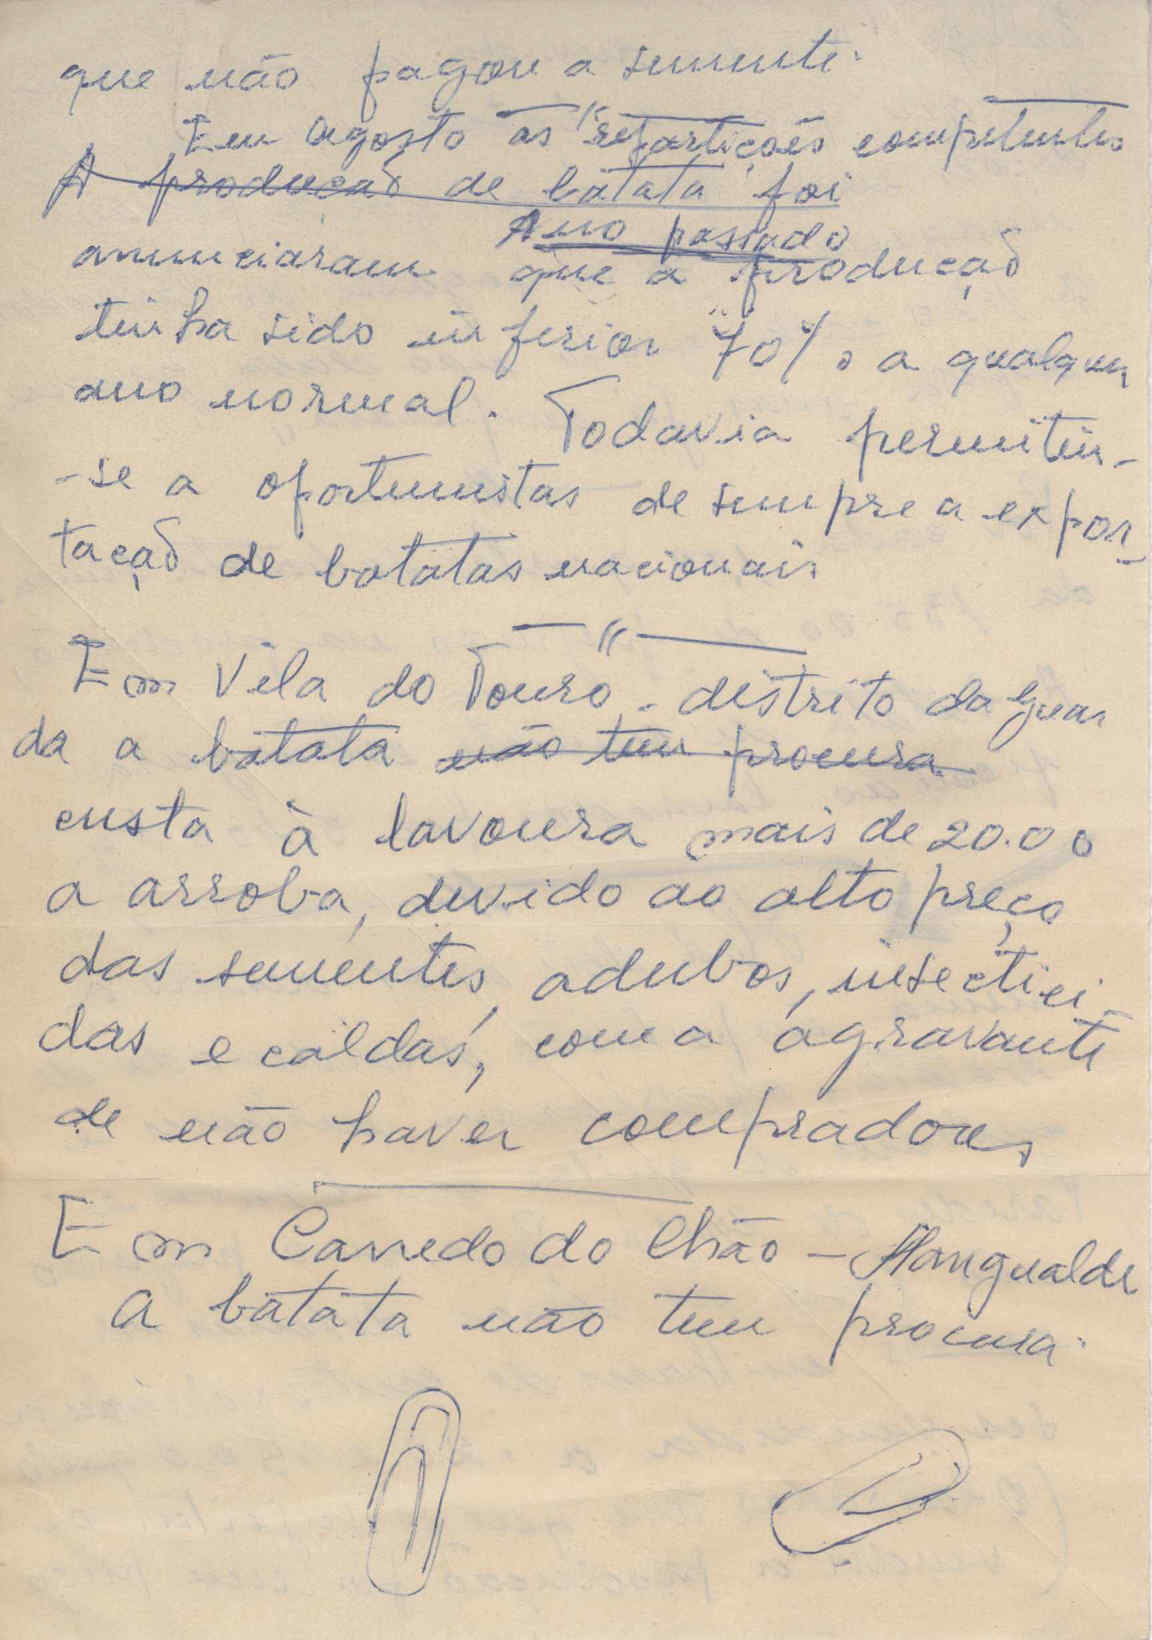 que não pagou a semente.
—— " ——
Em Agosto as repartições competentes
A produção de batata foi
Ano passado
anunciaram que a produção
tinha sido inferior 70% a qualquer
ano normal. Todavia permitiu-
-se a oportunistas de sempre a expor-
tação de batatas nacionais
—— " ——
Em Vila do Touro - distrito da Guar
da a batata não tem procura
custa à lavoura mais de 20.00
a arroba, devido ao alto preço
das sementes, adubos, insectici-
das e caldas, com a agravante
de não haver compradores
Em Canedo do Chão – Mangualde
a batata não tem procura.